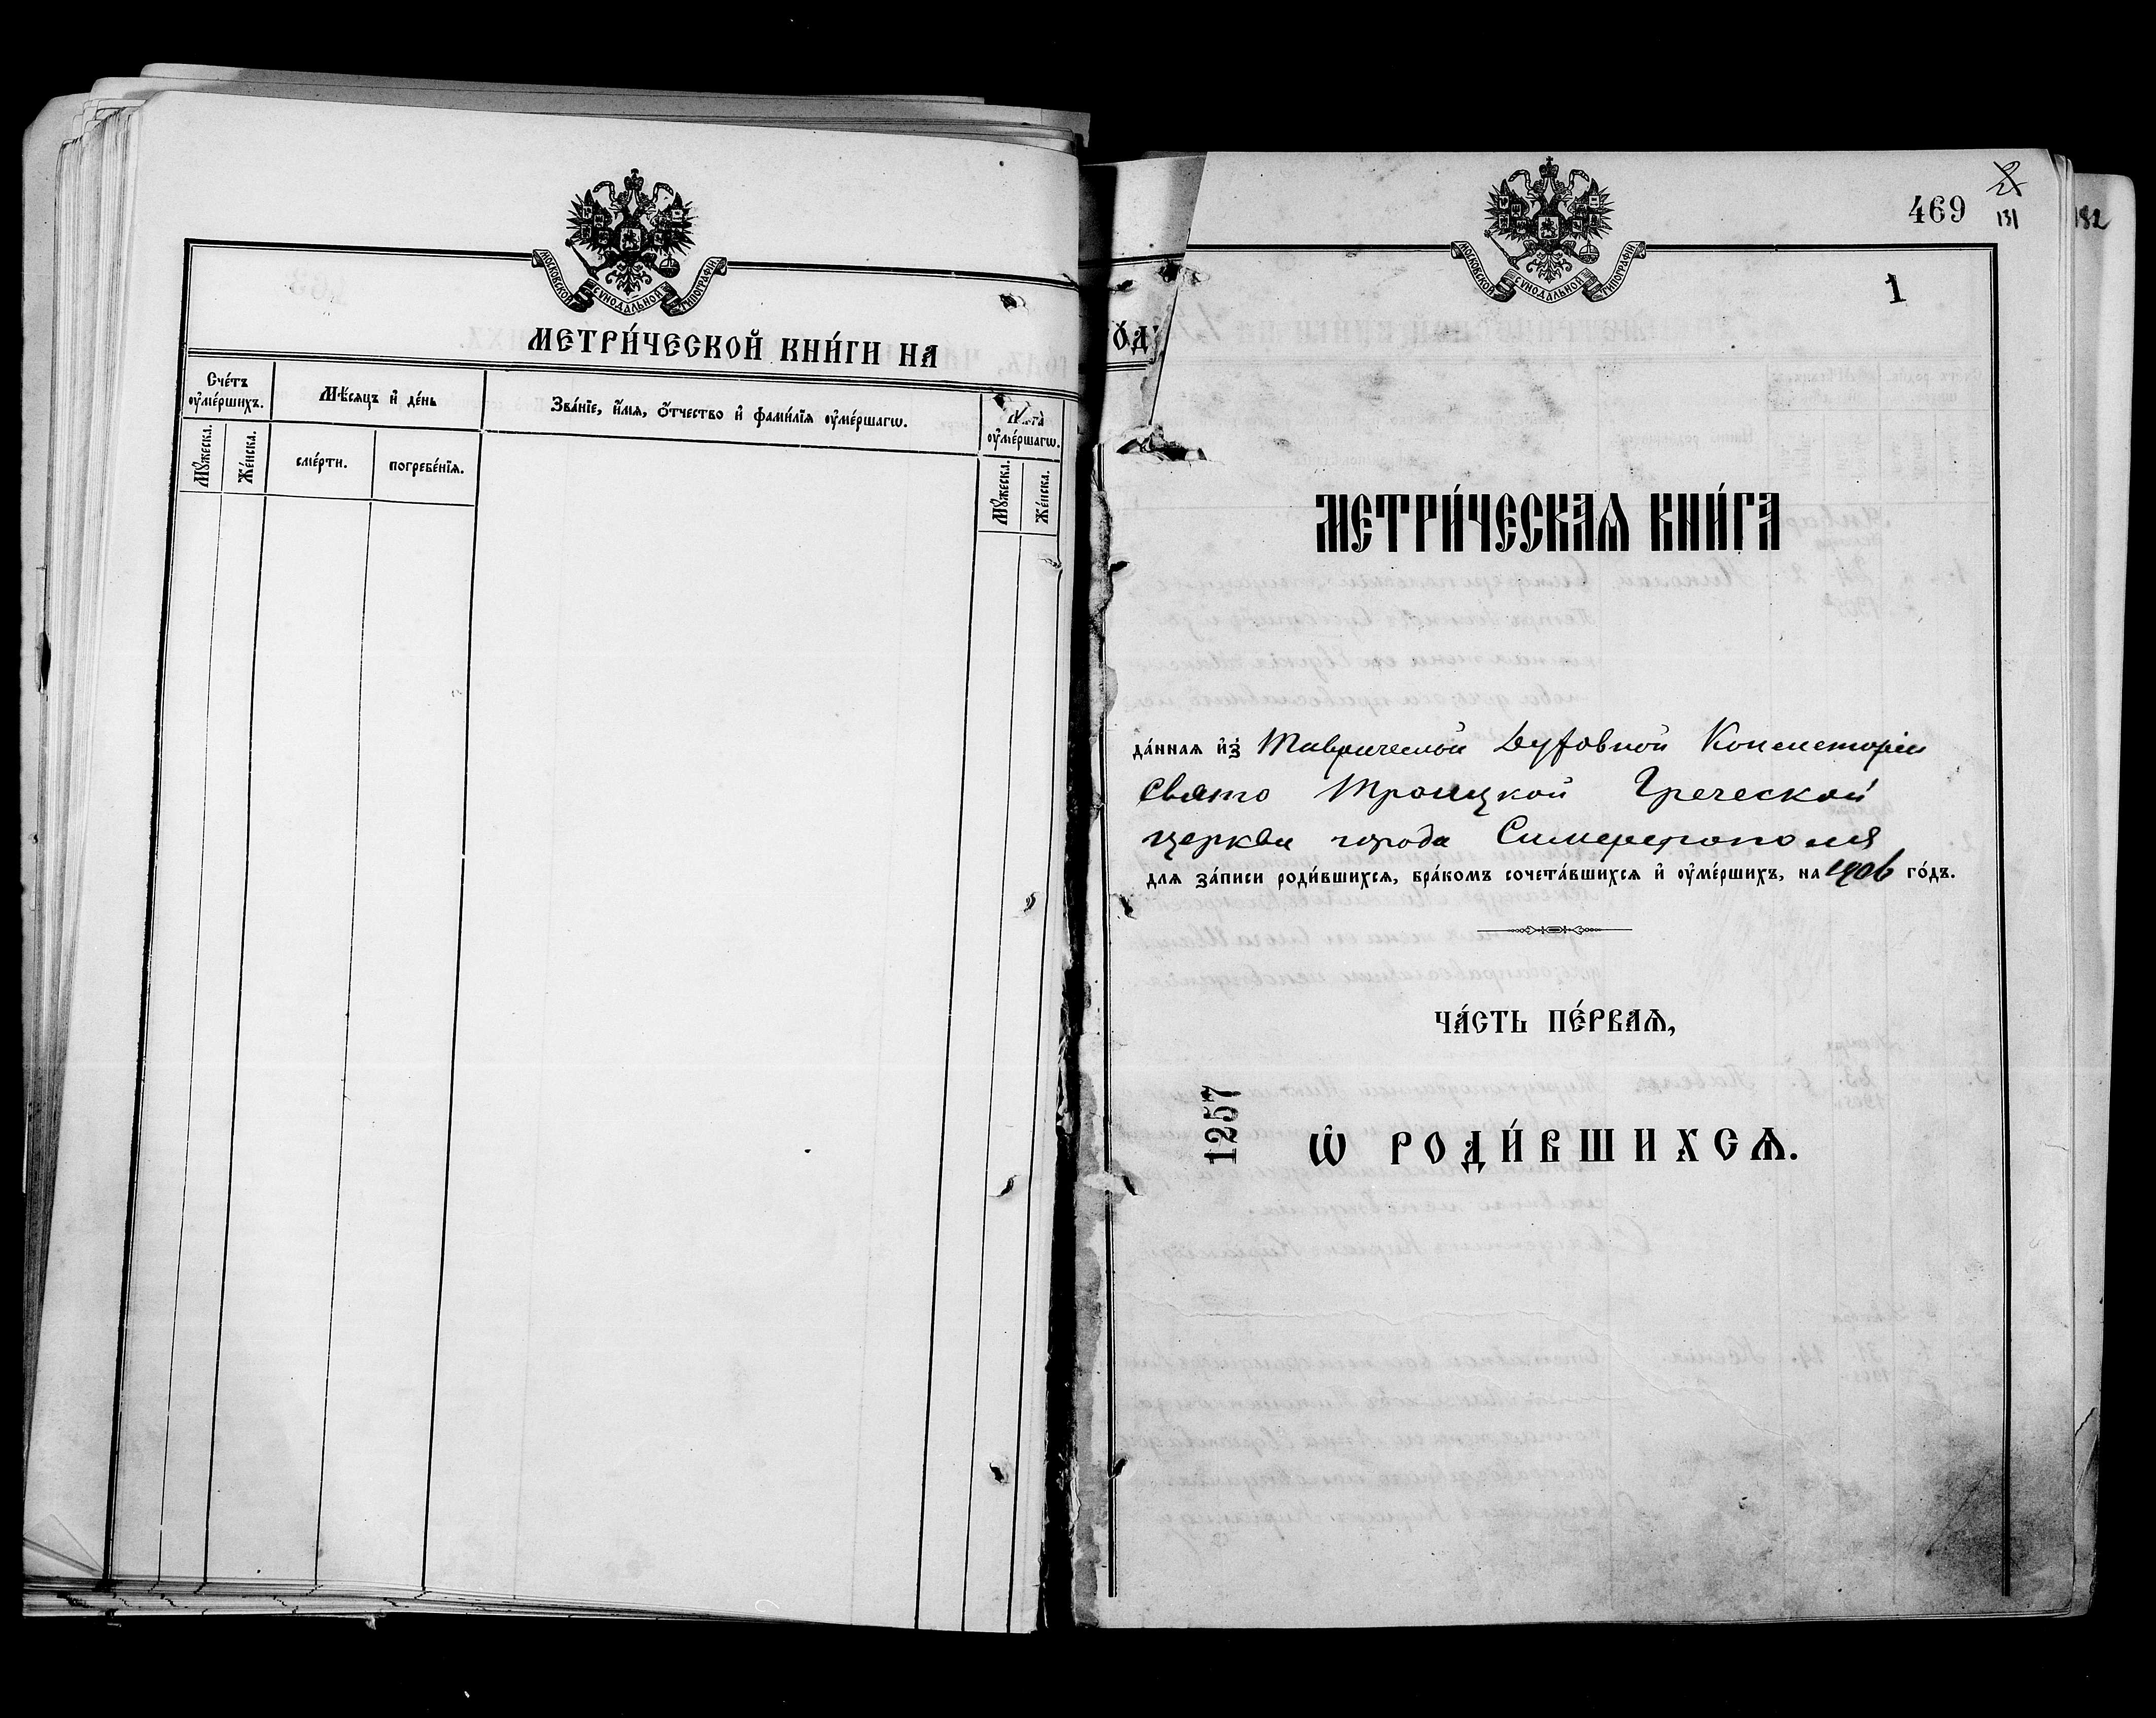 МОСКОВСКОЙ СѴНОДАЛЬНОЙ ТИПОГРАФІИ
МЕТРИ́ЧЕСКОЙ КНИ́ГИ НА
Сче́тъ ᲂу҆ме́ршихъ.
Мѣ́сяцъ и҆ де́нь
Зва́нїе, и҆́мѧ, ѻ҆́тчество и҆ фами́лїѧ ᲂу҆ме́ршагѡ.
ᲂу҆ме́ршагѡ.
Мꙋ́жеска.
Же́нска.
сме́рти.
погребе́нїѧ.
Мꙋ́жеска.
Же́нска.
о́дъ
469
131
182
МОСКОВСКОЙ СѴНОДАЛЬНОЙ ТИПОГРАФІИ
1
МЕТРИ́ЧЕСКАѦ КНИ́ГА
да́ннаѧ и҆з̾ Таврической Духовной Консисторіи
Свято Троицкой Греческой
церкви города Симферополя
для за́писи роди́вшихсѧ, бра́комъ сочета́вшихсѧ и҆ ᲂу҆ме́ршихъ, на 1906 го́дъ.
ЧА́СТЬ ПЕ́РВАѦ,
1257
Ѡ҆ РОДИ́ВШИХСѦ.